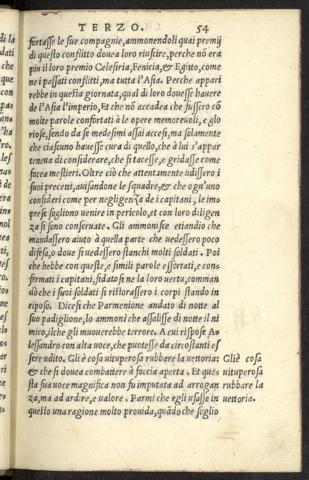 TERZO. 54
fortasse le sue compagnie, ammonendoli quai premij
di questo conflitto douea loro riuscire, perche nõ era
piu il loro premio Celesiria, Fenicia, & Egitto, come
ne i passati conflitti, ma tutta l'Asia. Perche appari
rebbe in questa giornata, qual di loro douesse hauere
de l'Asia l'imperio, Et che nõ accadea che fussero cõ
molte parole confortati à le opere memoreuoli, e glo
riose, sendo da se medesimi assai accesi, ma solamente
che ciascuno hauesse cura di quello, che à lui s'appar
teneua di considerare, che si tacesse, e gridasse come
facea mestieri. Oltre ciò che attentamente udissero i
suoi precetti, auisandone le squadre, & che ogn'uno
consideri come per negligenza de i capitani, le im
prese sogliono uenire in pericolo, et con loro diligen
za si sono conseruate. Gli ammonisce etiandio che
mandassero aiuto à quella parte che uedessero poco
difesa, o doue si uedessero stanchi molti soldati. Poi
che hebbe con queste, e simili parole essortati, e con-
fermati i capitani, fidatosi ne la loro uertu, comman
dò che i suoi soldati si ristorassero i corpi stando in
riposo. Dicesi che Parmenione andato di notte al
suo padiglione, lo ammonì che assalisse di notte il ni
mico, ilche gli muouerebbe terrore. A cui rispose A-
lessandro con alta uoce, che puotesse da circostanti es
sere udito. Gli è cosa uituperosa rubbare la uettoria:
& che si douea combattere à faccia aperta. Et que-
sta sua uoce magnifica non fu imputata ad arrogan
za, ma ad ardire, e ualore. Parmi che egli usasse in
questo una ragione molto prouida, quãdo che soglio
Gliè cosa
uituperosa
rubbare la
uettoria.